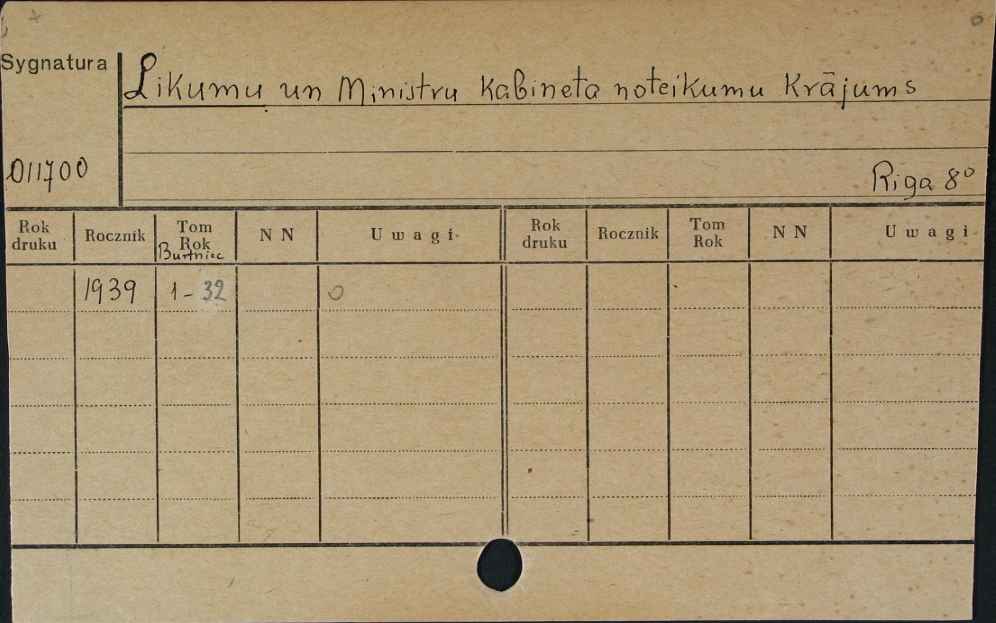 Sygnatura
Likumu un Ministru Kabineta noteikumu Krājums
011700
Riga 8°
Rok druku Rocznik Tom Rok N N Uwagi Rok druku Rocznik Tom Rok N N Uwagi
Burtnic
1939 1-32 0